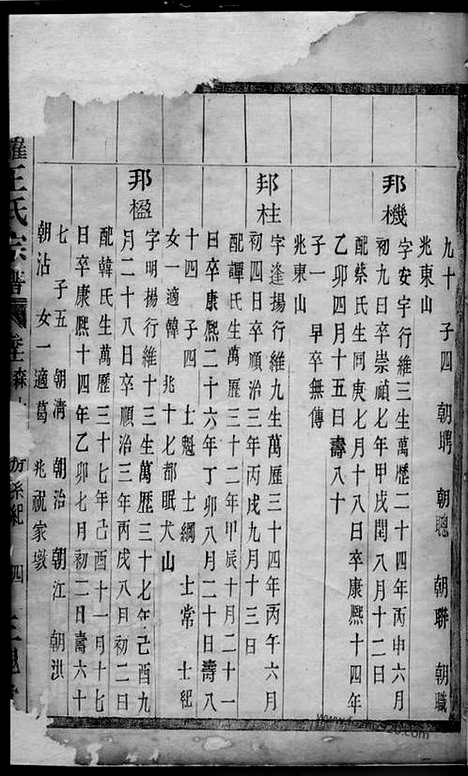 九十　子四　朝聘　朝聰　朝聯　朝職
兆東山
邦機
字安宇行維三生萬歷二十四年丙申六月
初九日卒崇禎七年甲戌閏八月十二日
配蔡氏生同庚七月十八日卒康熙十四年
乙卯四月十五日壽八十
子一　早卒無傳
兆東山
邦柱
字逢揚行維九生萬歷三十四年丙午六月
初四日卒順治三年丙戌九月十三日
配譚氏生萬歷三十二年甲辰十月二十一
日卒康熙二十六年丁卯八月二十日壽八
十四　子四　士魁　士綱　士常　士紀
女一適韓　兆十七都眠犬山
邦楹
字明揚行維十三生萬歷三十七年己酉九
月二十八日卒順治三年丙戌八月初二日
配韓氏生萬歷三十七年己酉十一月十七
日卒康熙十四年乙卯七月初二日壽六十
七　子五　朝清　朝治　朝江　朝洪
朝沾　女一適葛　兆祝家墩
羅王氏宗譜